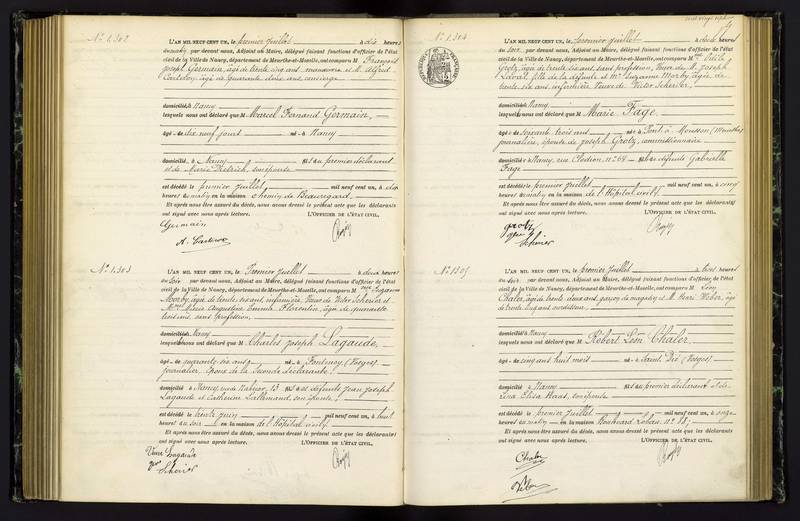 N° 1.302
L'AN MIL NEUF CENT UN, le premier Juillet à dix heures
du matin, par devant nous, Adjoint au Maire, délégué faisant fonctions d'officier de l'état
civil de la Ville de Nancy, département de Meurthe-et-Moselle, ont comparu M François
Joseph Germain, âgé de trente cinq ans, manœuvre et M. Alfred
âgé de quarante deux ans, concierge
domiciliés à Nancy
lesquels nous ont déclaré que M Marcel Fernand Germain,
âgé de dix neuf jours né à Nancy
domicilié à Nancy fils du premier déclarant
et de Marie Dietrich, son épouse
est décédé le premier Juillet mil neuf cent un, à
heures du matin en la maison chemin de Beauregard.
Et après nous être assuré du décès, nous avons dressé le présent acte que les déclarants
ont signé avec nous après lecture. L'OFFICIER DE L'ÉTAT CIVIL,
Germain
N° 1.303
L'AN MIL NEUF CENT UN, le Premier Juillet à deux heures
du soir par devant nous, Adjoint au Maire, délégué faisant fonctions d'officier de l'état
civil de la Ville de Nancy, département de Meurthe-et-Moselle, ont comparu M me Suzanne
Morby, âgée de trente six ans, infirmière, Veuve de Victor Scherier et
Marie Augustine Emma Florentin, âgée de quarante
trois ans, sans profession,
domiciliés à Nancy
lesquelles nous ont déclaré que M Charles Joseph Lagaude,
âgé de quarante six ans né à Fontenoy (Vosges)
journalier, époux de la seconde déclarante;
domicilié à Nancy, 13 fils des défunts Jean Joseph
Lagaude et Catherine Lallemand, son épouse;
est décédé le trente juin mil neuf cent un, à huit
heures du soir en la maison de l'Hôpital civil;
Et après nous être assuré du décès, nous avons dressé le présent acte que les déclarants
ont signé avec nous après lecture. L'OFFICIER DE L'ÉTAT CIVIL,
Lagaude
Scherier
N° 1.304
L'AN MIL NEUF CENT UN, le premier Juillet à deux heures
du soir par devant nous, Adjoint au Maire, délégué faisant fonctions d'officier de l'état
civil de la Ville de Nancy, département de Meurthe-et-Moselle, ont comparu M
Grotz, âgée de trente six ans, sans profession, Veuve de M. Joseph
Laval, fille de la défunte et Me Suzanne Morby, âgée de
trente six ans, infirmière, Veuve de Victor Scherier,
domiciliés à Nancy
lesquelles nous ont déclaré que M Marie Fage,
âgée de soixante trois ans née à Pont à Mousson (Meurthe)
journalière, épouse de Joseph Grotz, commissionnaire
domiciliée à Nancy, rue Clodion, n° 64 fille de défunte Gabrielle
Fage
est décédée le premier Juillet mil neuf cent un, à cinq
heures du matin en la maison de l'Hôpital civil;
Et après nous être assuré du décès, nous avons dressé le présent acte que les déclarants
ont signé avec nous après lecture. L'OFFICIER DE L'ÉTAT CIVIL,
grotz
Scherier
N° 1305
L'AN MIL NEUF CENT UN, le premier Juillet à trois heures
du soir par devant nous, Adjoint au Maire, délégué faisant fonctions d'officier de l'état
civil de la Ville de Nancy, département de Meurthe-et-Moselle, ont comparu M Léon
Chaler, âgé de trente deux ans, garçon de magasin et M. Henri Weber, âgé
de trente cinq ans,
domiciliés à Nancy
lesquels nous ont déclaré que M Robert Léon Chaler
âgé de cinq ans huit mois né à Saint Dié (Vosges)
domicilié à Nancy fils du premier déclarant et de
Elisa son épouse
est décédé le premier Juillet mil neuf cent un, à onze
heures du matin en la maison Boulevard Lobau n° 18;
Et après nous être assuré du décès, nous avons dressé le présent acte que les déclarants
ont signé avec nous après lecture. L'OFFICIER DE L'ÉTAT CIVIL,
Chaler